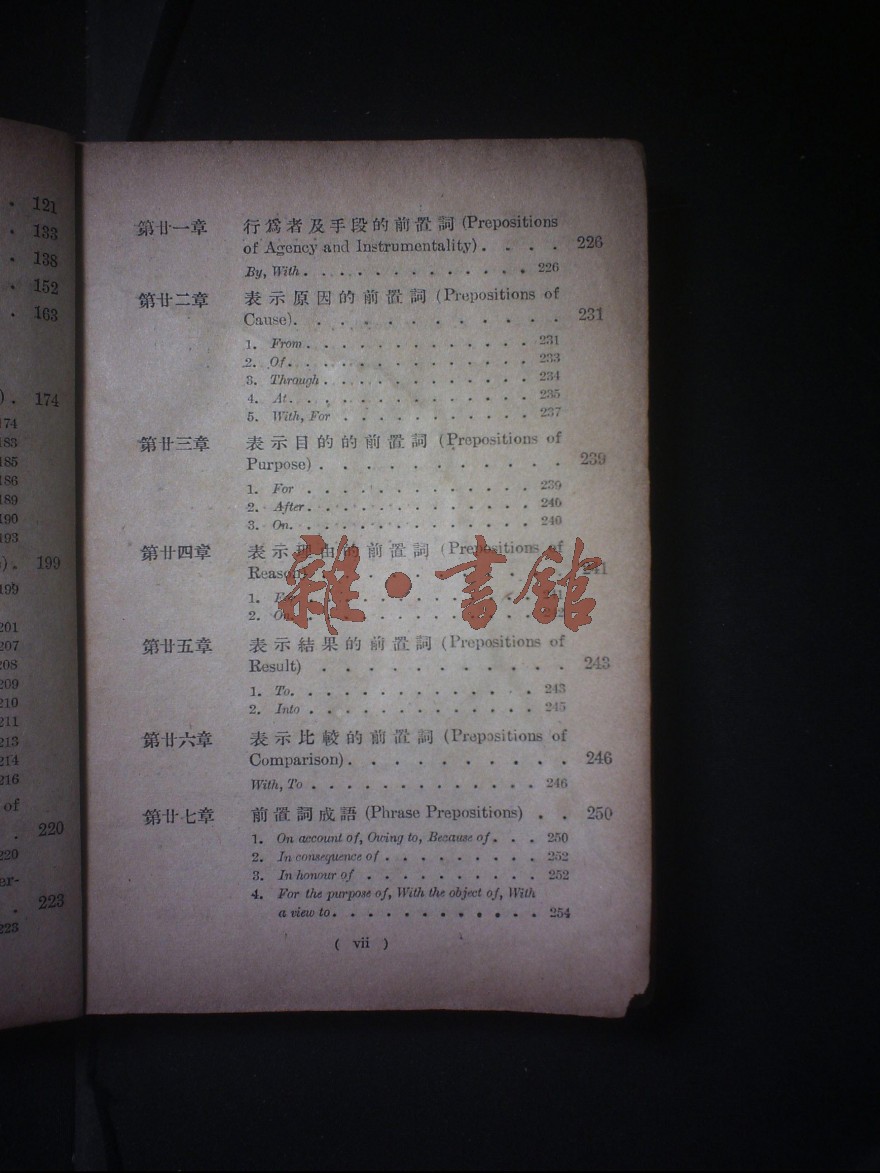 121
133
138
152
163
) . 174
174
183
185
186
189
190
193
) . 199
199
201
207
208
209
210
211
213
214
216
of
. 220
220
er-
. 223
223
第廿一章 行爲者及手段的前置詞 (Prepositions
of Agency and Instrumentality) . . . . 226
By, With . . . . . . . . . . . . . 226
第廿二章 表示原因的前置詞 (Prepositions of
Cause) . . . . . . . . . . . . 231
1. From . . . . . . . . . . . . . 231
2. Of . . . . . . . . . . . . . . 233
3. Through . . . . . . . . . . . . 234
4. At . . . . . . . . . . . . . . 235
5. With, For . . . . . . . . . . . 237
第廿三章 表示目的的前置詞 (Prepositions of
Purpose) . . . . . . . . . . . 239
1. For . . . . . . . . . . . . . 239
2. After . . . . . . . . . . . . . 240
3. On . . . . . . . . . . . . . . 240
第廿四章 表示理由的前置詞 (Prepositions of
Reason) . . . . . . . . . . . 241
1. For . . . . . . . . . . . . .
2. On . . . . . . . . . . . . . 242
雜·書館
第廿五章 表示結果的前置詞 (Prepositions of
Result) . . . . . . . . . . . 243
1. To . . . . . . . . . . . . . . 243
2. Into . . . . . . . . . . . . . 245
第廿六章 表示比較的前置詞 (Prepositions of
Comparison) . . . . . . . . . . 246
With, To . . . . . . . . . . . . 246
第廿七章 前置詞成語 (Phrase Prepositions) . . 250
1. On account of, Owing to, Because of . . . 250
2. In consequence of . . . . . . . . . 252
3. In honour of . . . . . . . . . . 252
4. For the purpose of, With the object of, With
a view to . . . . . . . . . . . . 254
( vii )